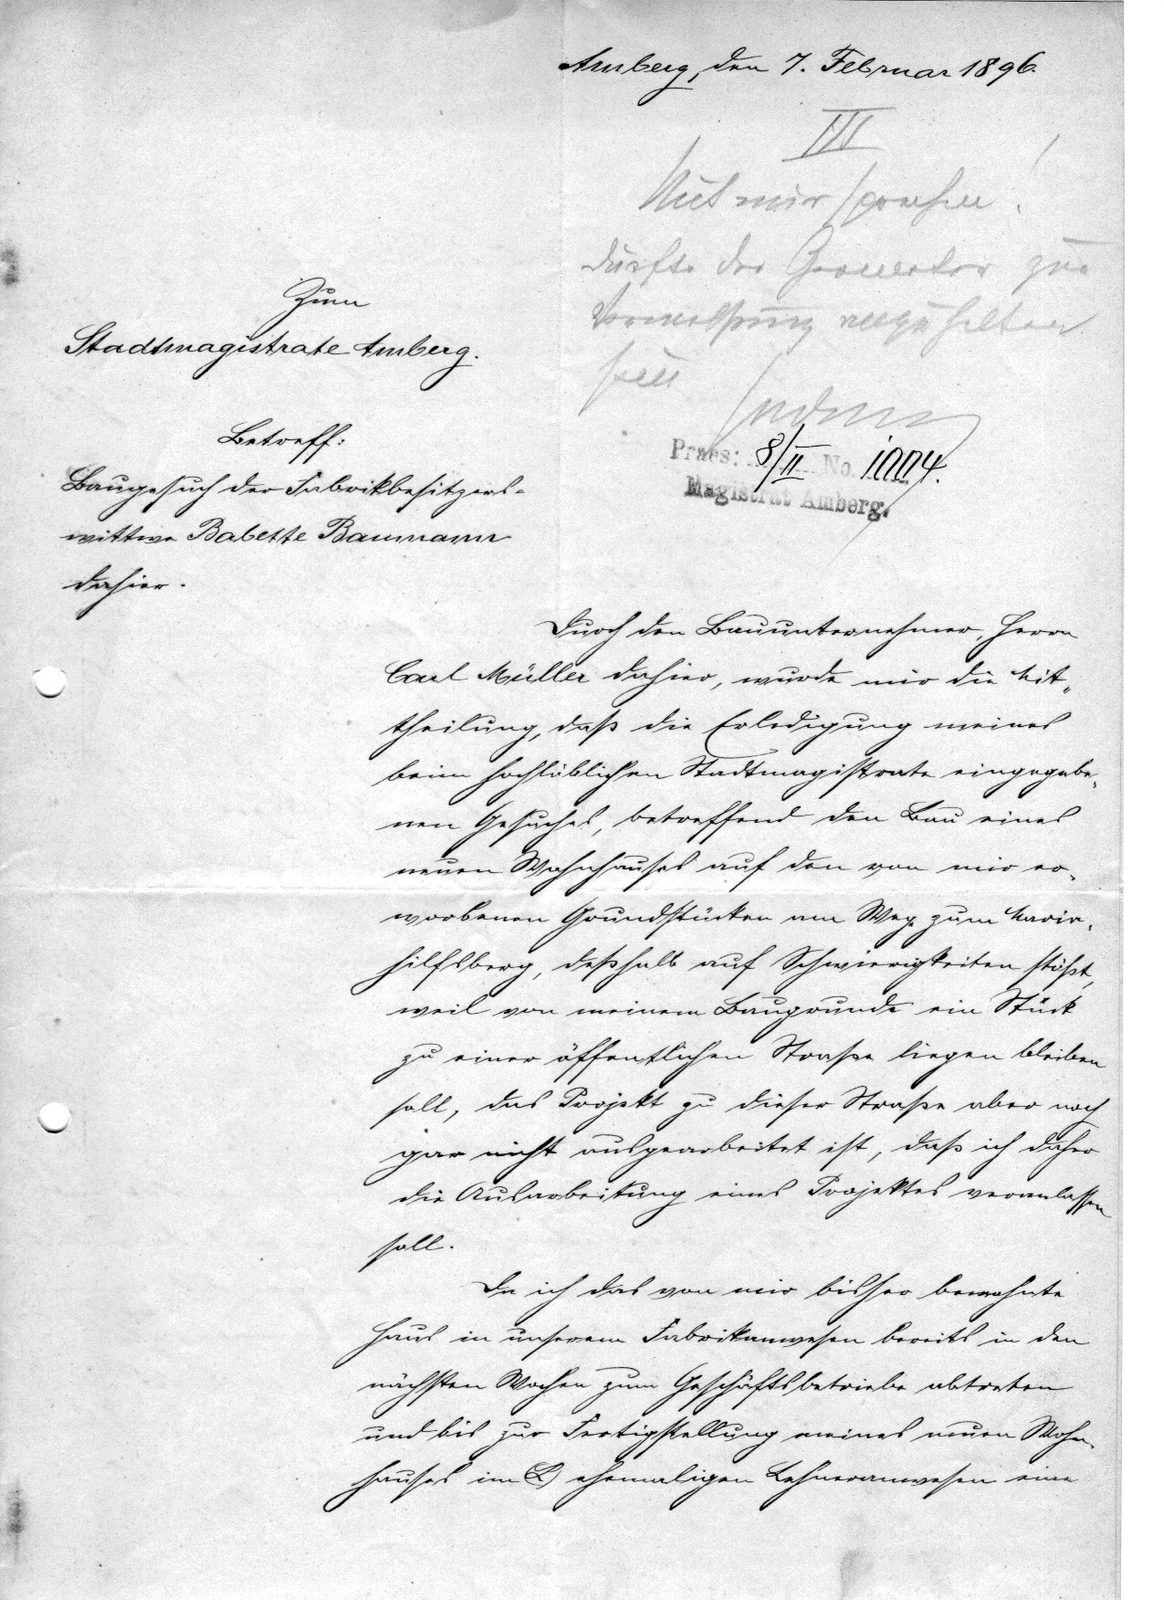 Amberg, den 7. Februar 1896.
III
Mit mir sprechen!
dürfte der Geometer zur
Vermessung
sein
Zum
Stadtmagistrate Amberg.
Betreff:
Baugesuch der Fabrikbesitzers-
wittwe Babette Baumann
dahier.
Praes: 8/II No. 1994.
Magistrat Amberg.
Durch den Bauunternehmer, Herrn
Carl Müller dahier, wurde mir die Mit-
theilung, daß die Erledigung meines
beim hochlöblichen Stadtmagistrate eingegebe-
nen Gesuches, betreffend den Bau eines
neuen Wohnhauses auf den von mir er-
worbenen Grundstücken am Weg zum Maria-
hilfsberg, deßhalb auf Schwierigkeiten stößt,
weil von meinem Baugrunde ein Stück
zu einer öffentlichen Straße liegen bleiben
soll, das Projekt zu dieser Straße aber noch
gar nicht ausgearbeitet ist, daß ich daher
die Ausarbeitung eines Projektes veranlassen
soll.
Da ich das von mir bisher bewohnte
Haus in unserem Fabrikanwesen bereits in den
nächsten Wochen zum Geschäftsbetriebe abtreten
und bis zur Fertigstellung meines neuen Wohn-
hauses im ehemaligen Lehneranwesen eine